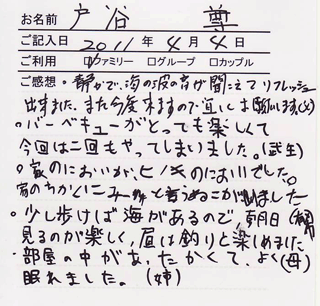 お名前 戸谷 尊
ご記入日 2011年4月4日
ご利用 ☑ファミリー □グループ □カップル
ご感想 ・静かで、海の波の音が聞こえてリフレッシュ
出来ました。また今度来ますので宜しくお願いします(父)
・バーベキューがとっても楽しくて
今回は二回もやってしまいました。
・家のにおいが、ヒノキのにおいでした。
家のちかくに と言うねこがいました
・少し歩けば海があるので、朝日
見るのが楽しく、昼は釣りと楽しめました
・部屋の中があたたかくて、よく(母)
眠れました。(姉)